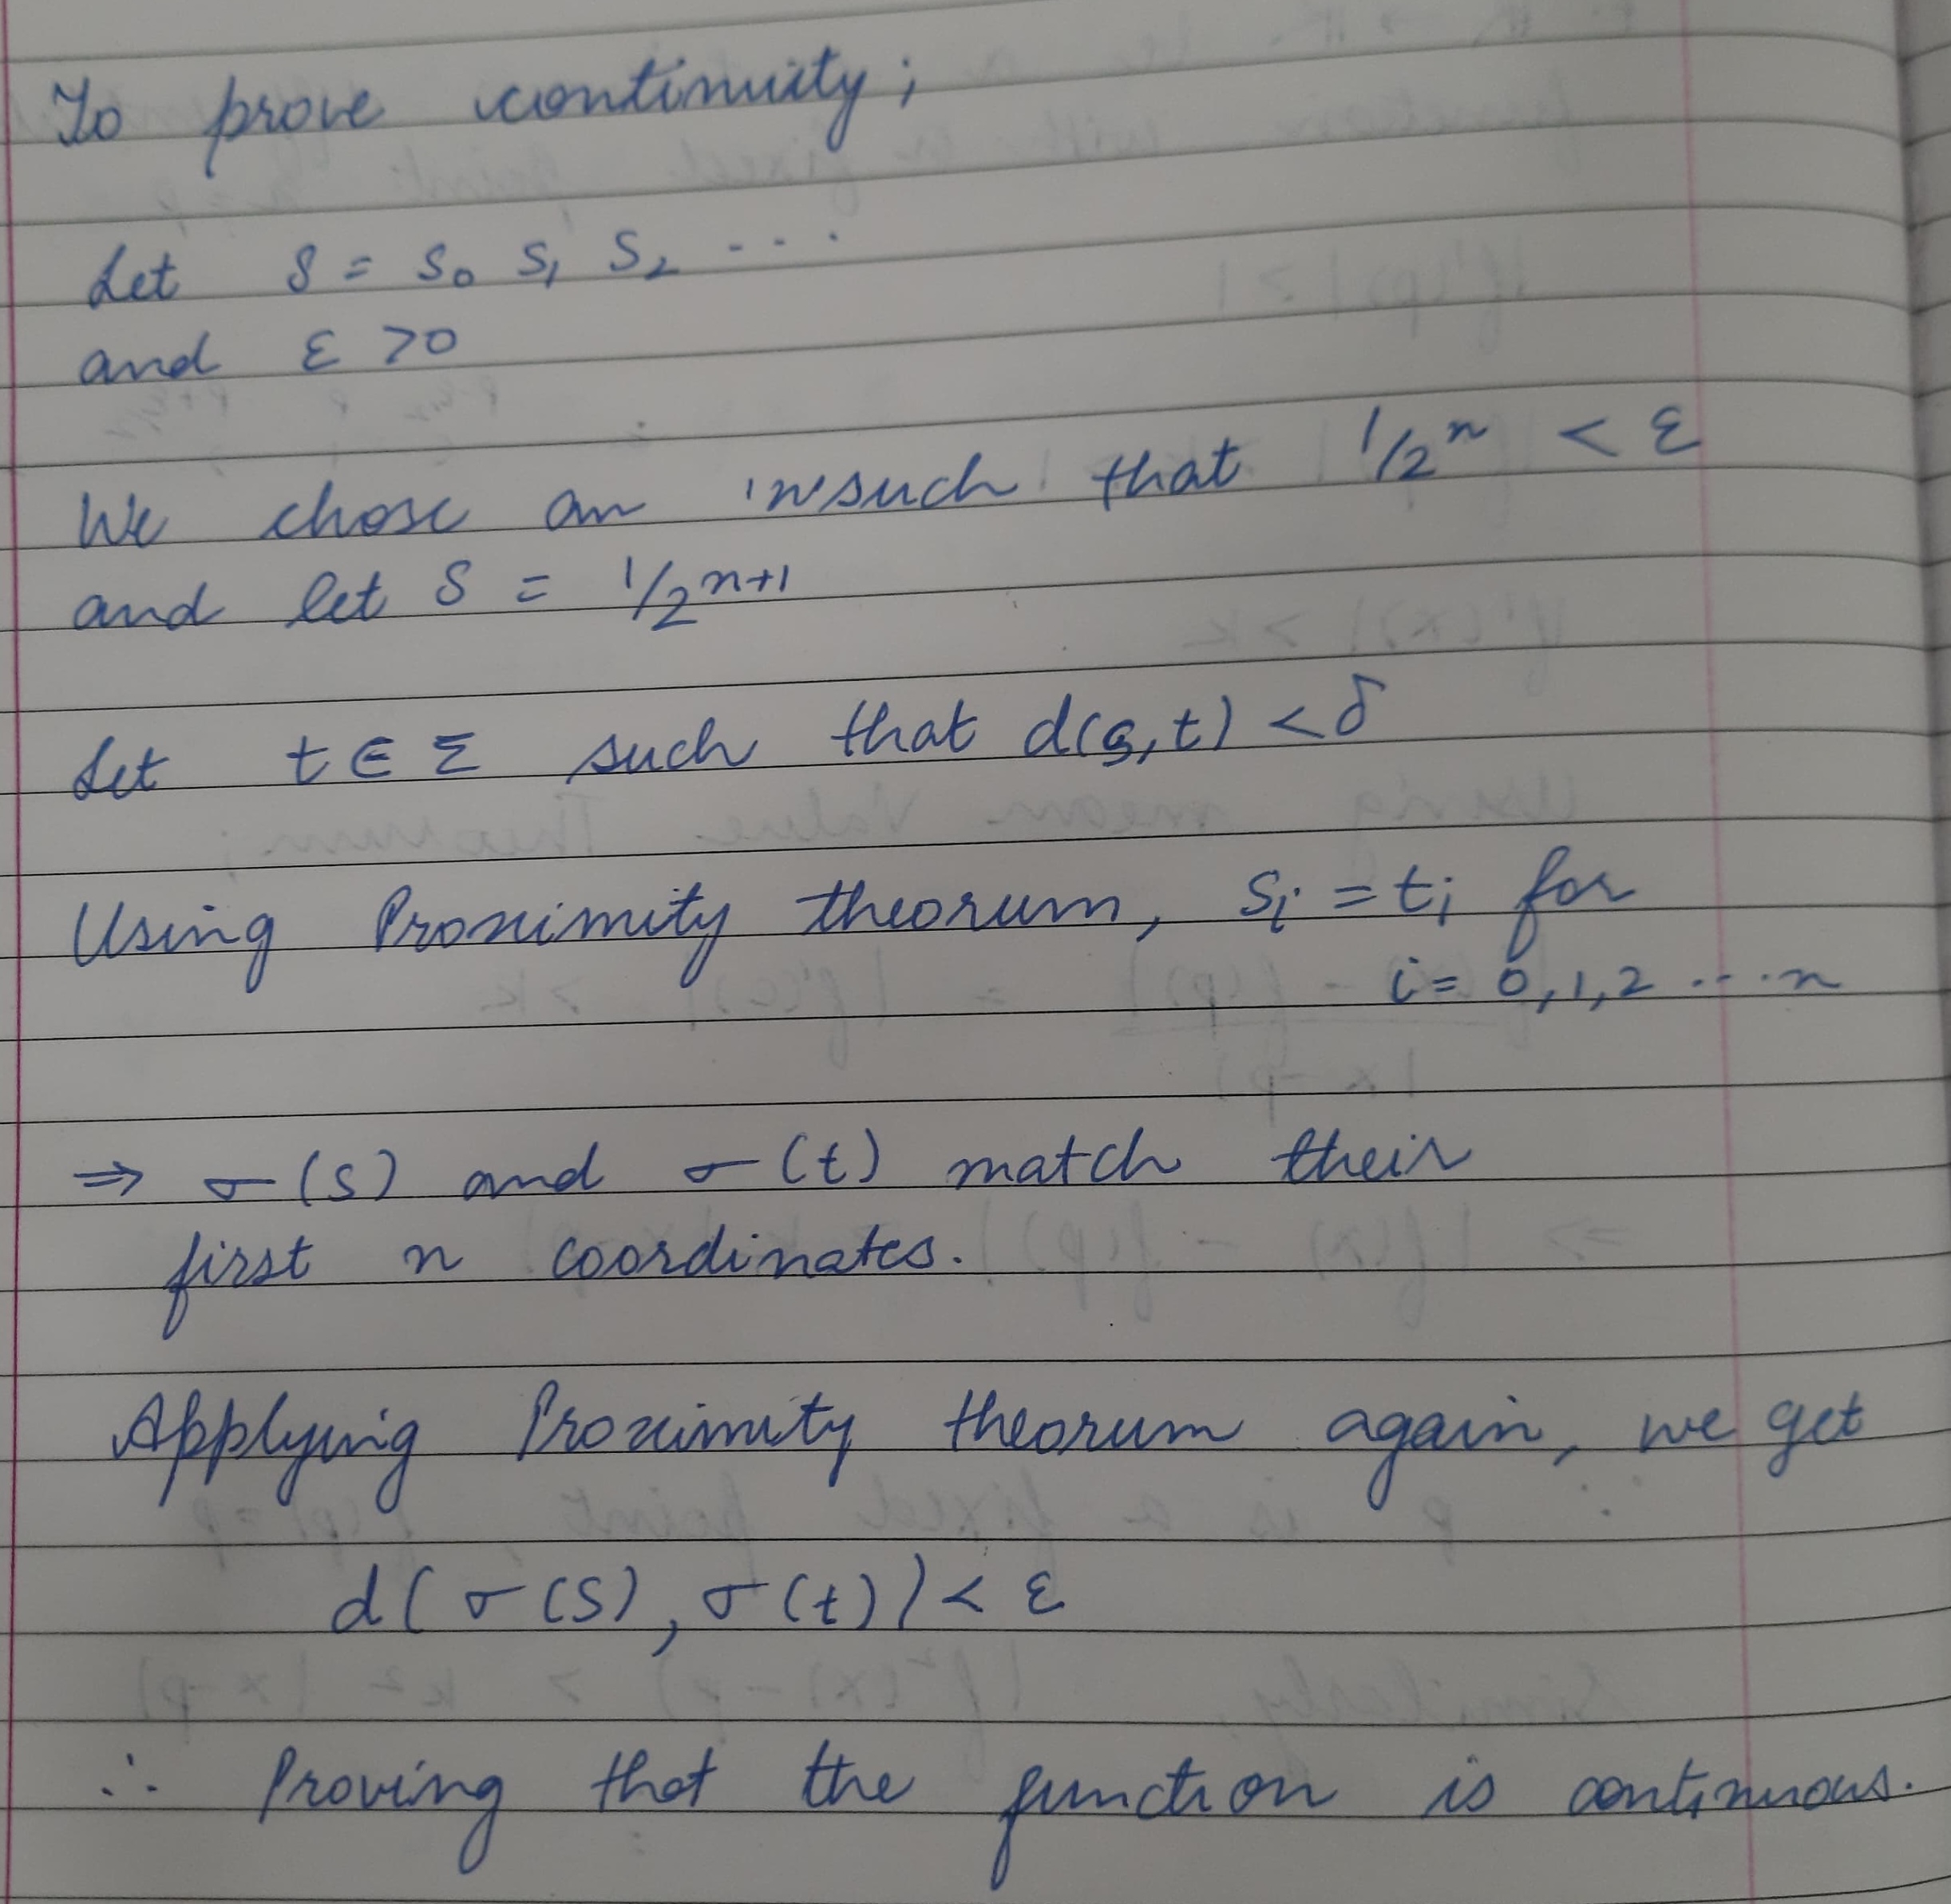 To prove continuity;
Let s = s₀ s₁ s₂ ....
and ε >0
We chose an n such that 1/2ⁿ < ε
and let δ = 1/2ⁿ⁺¹
Let t ∈ Σ such that d(s,t) < δ
Using Proximity theorum, sᵢ = tᵢ for
i = 0,1,2 ....n
⇒ σ(s) and σ(t) match their
first n coordinates.
Applying Proximity theorum again, we get
d(σ(s), σ(t)) < ε
∴ Proving that the function is continuous.